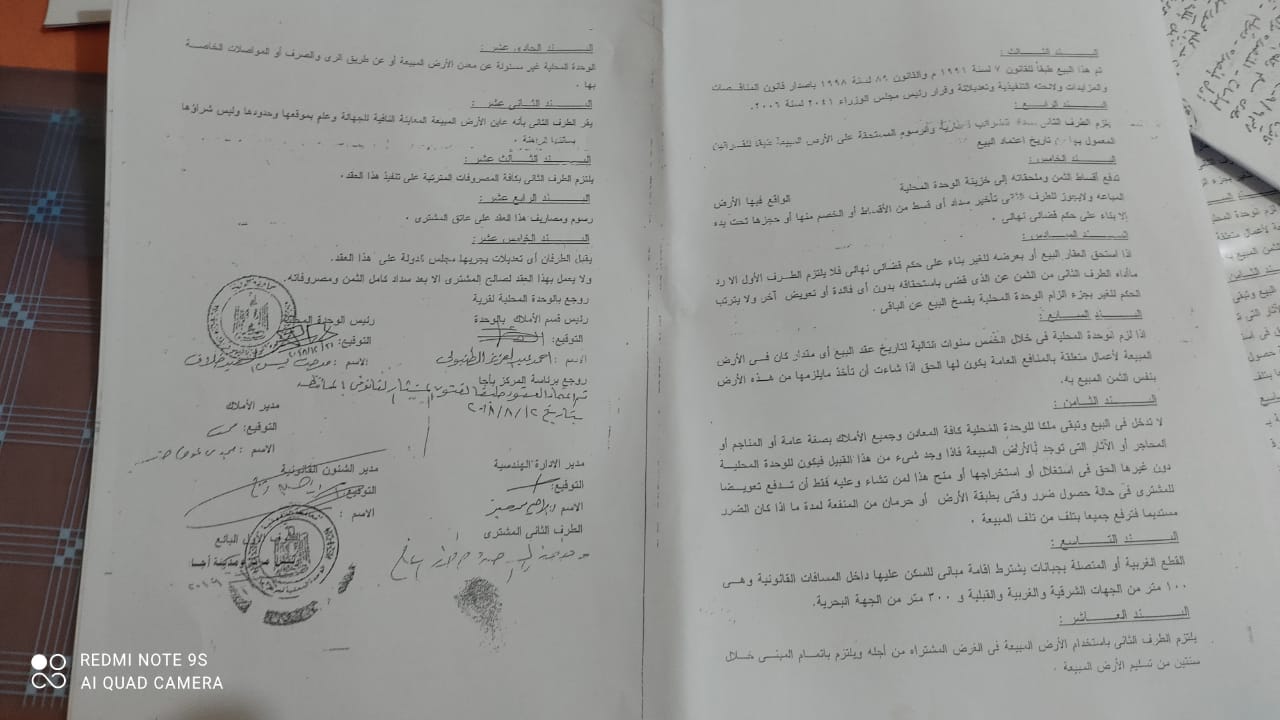 البند الثالث :
تم هذا البيع طبقاً للقانون ٧ لسنة ١٩٩١ م والقانون ٨٩ لسنة ١٩٩٨ باصدار قانون المناقصات
والمزايدات ولائحته التنفيذية وتعديلاتة وقرار رئيس مجلس الوزراء ٢٠٤١ لسنة ٢٠٠٦.
البند الرابع :
يلتزم الطرف الثانى سداد الضرائب العقارية والرسوم المستحقة على الأرض المبيعة طبقا للقوانين
المعمول بها من تاريخ اعتماد البيع
البند الخامس:
تدفع أقساط الثمن وملحقاته إلى خزينة الوحدة المحلية الواقع فيها الأرض
المباعه ولايجوز للطرف الثانى تأخير سداد أى قسط من الأقساط أو الخصم منها أو حجزها تحت يده
إلا بناء على حكم قضائى نهائى .
البند السادس:
اذا استحق العقار البيع أو بعرضه للغير بناء على حكم قضائى نهائى فلا يلتزم الطرف الأول الا رد
ماأداه الطرف الثانى من الثمن عن الذى قضى باستحقاقه بدون أى فائدة أو تعويض آخر ولا يترتب
الحكم للغير بجزء الزام الوحدة المحلية بفسخ البيع عن الباقى .
البند السابع :
اذا لزم لوحدة المحلية فى خلال الخمس سنوات التالية لتاريخ عقد البيع أى مقدار كان فى الأرض
المبيعة لأعمال متعلقة بالمنافع العامة يكون لها الحق اذا شاءت أن تأخذ مايلزمها من هذه الأرض
بنفس الثمن المبيع به.
البند الثامن :
لا تدخل فى البيع وتبقى ملكا للوحدة المحلية كافة المعادن وجميع الأملاك بصفة عامة أو المناجم أو
المحاجر أو الآثار التى توجد بالأرض المبيعة فاذا وجد شىء من هذا القبيل فيكون للوحدة المحلية
دون غيرها الحق فى استغلال أو استخراجها أو منح هذا لمن تشاء وعليه فقط أن تدفع تعويضا
للمشترى فى حالة حصول ضرر وقتى بطبقة الأرض أو حرمان من المنفعة لمدة ما اذا كان الضرر
مستديما فترفع جميعا بتلف من تلف المبيعة .
البند التاسع :
القطع الغربية أو المتصلة بجبانات يشترط اقامة مبانى للسكن عليها داخل المسافات القانونية وهى
١٠٠ متر من الجهات الشرقية والغربية والقبلية و ٣٠٠ متر من الجهة البحرية.
البند العاشر :
يلتزم الطرف الثانى باستخدام الأرض المبيعة فى الغرض المشتراه من أجله ويلتزم باتمام المبنى خلال
سنتين من تسليم الأرض المبيعة .
البند الحادى عشر :
الوحدة المحلية غير مسئولة عن معدن الأرض المبيعة أو عن طريق الرى والصرف أو المواصلات الخاصة
بها .
البند الثانى عشر :
يقر الطرف الثانى بأنه عاين الأرض المبيعة المعاينة النافية للجهالة وعلم بموقعها وحدودها وليس شراؤها
البند الثالث عشر :
يلتزم الطرف الثانى بكافة المصروفات المترتبة على تنفيذ هذا العقد.
البند الرابع عشر :
رسوم ومصاريف هذا العقد على عاتق المشترى .
البند الخامس عشر:
يقبل الطرفان أى تعديلات يجريها مجلس الدولة على هذا العقد.
ولا يعمل بهذا العقد لصالح المشترى الا بعد سداد كامل الثمن ومصروفاته.
روجع بالوحدة المحلية لقرية
رئيس قسم الأملاك بالوحدة رئيس الوحدة المحلية
التوقيع: التوقيع:
الاسم : احمد عبد العزيز الاسم :
روجع برئاسة المركز بأجا
بتاريخ ٢٠١٨/٨/١٢
مدير الأملاك
التوقيع:
الاسم :
مدير الادارة الهندسية مدير الشئون القانونية
التوقيع: التوقيع:
الاسم الاسم :
الطرف الثانى المشترى الطرف الأول البائع
رئيس مركز ومدينة أجا
REDMI NOTE 9S
AI QUAD CAMERA